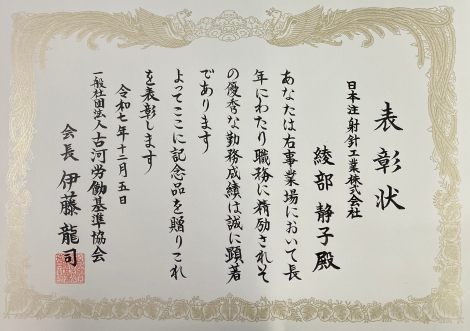 表彰状
日本注射針工業株式会社
綾部静子殿
あなたは右事業場において長
年にわたり職務に精励されそ
の優秀な勤務成績は誠に顕著
であります
よってここに記念品を贈りこれ
を表彰します
令和七年十二月五日
一般社団法人古河労働基準協会
会長 伊藤龍司